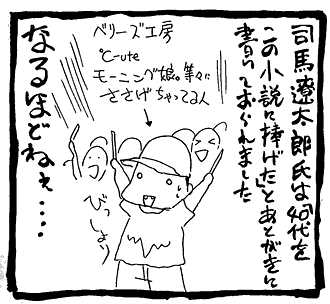 司馬遼太郎氏は40代を
この小説に捧げた」とあとがきに
書いておられました
ベリーズ工房
℃-ute
モーニング娘。等々に
ささげちゃってる人
びっしょり
なるほどねぇ・・・